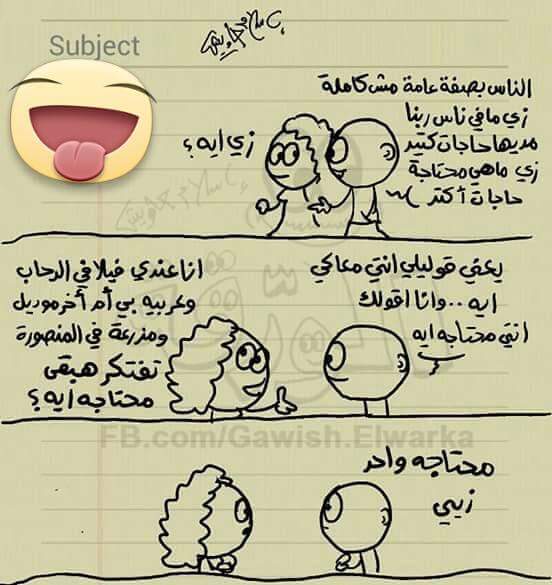 Subject
الناس بصفة عامة مش كاملة
زي ما في ناس ربنا
مديها حاجات كتير
زي ما هي محتاجة
حاجات أكتر
زي ايه ؟
يعني قوليلي انتي معاكي
ايه .. وانا اقولك
انتي محتاجه ايه
انا عندي فيلا في الرحاب
وعربيه بي أم أخر موديل
ومزرعة في المنصورة
تفتكر هبقى
محتاجه ايه ؟
FB.com/Gawish.Elwarka
محتاجه واحد
زيي